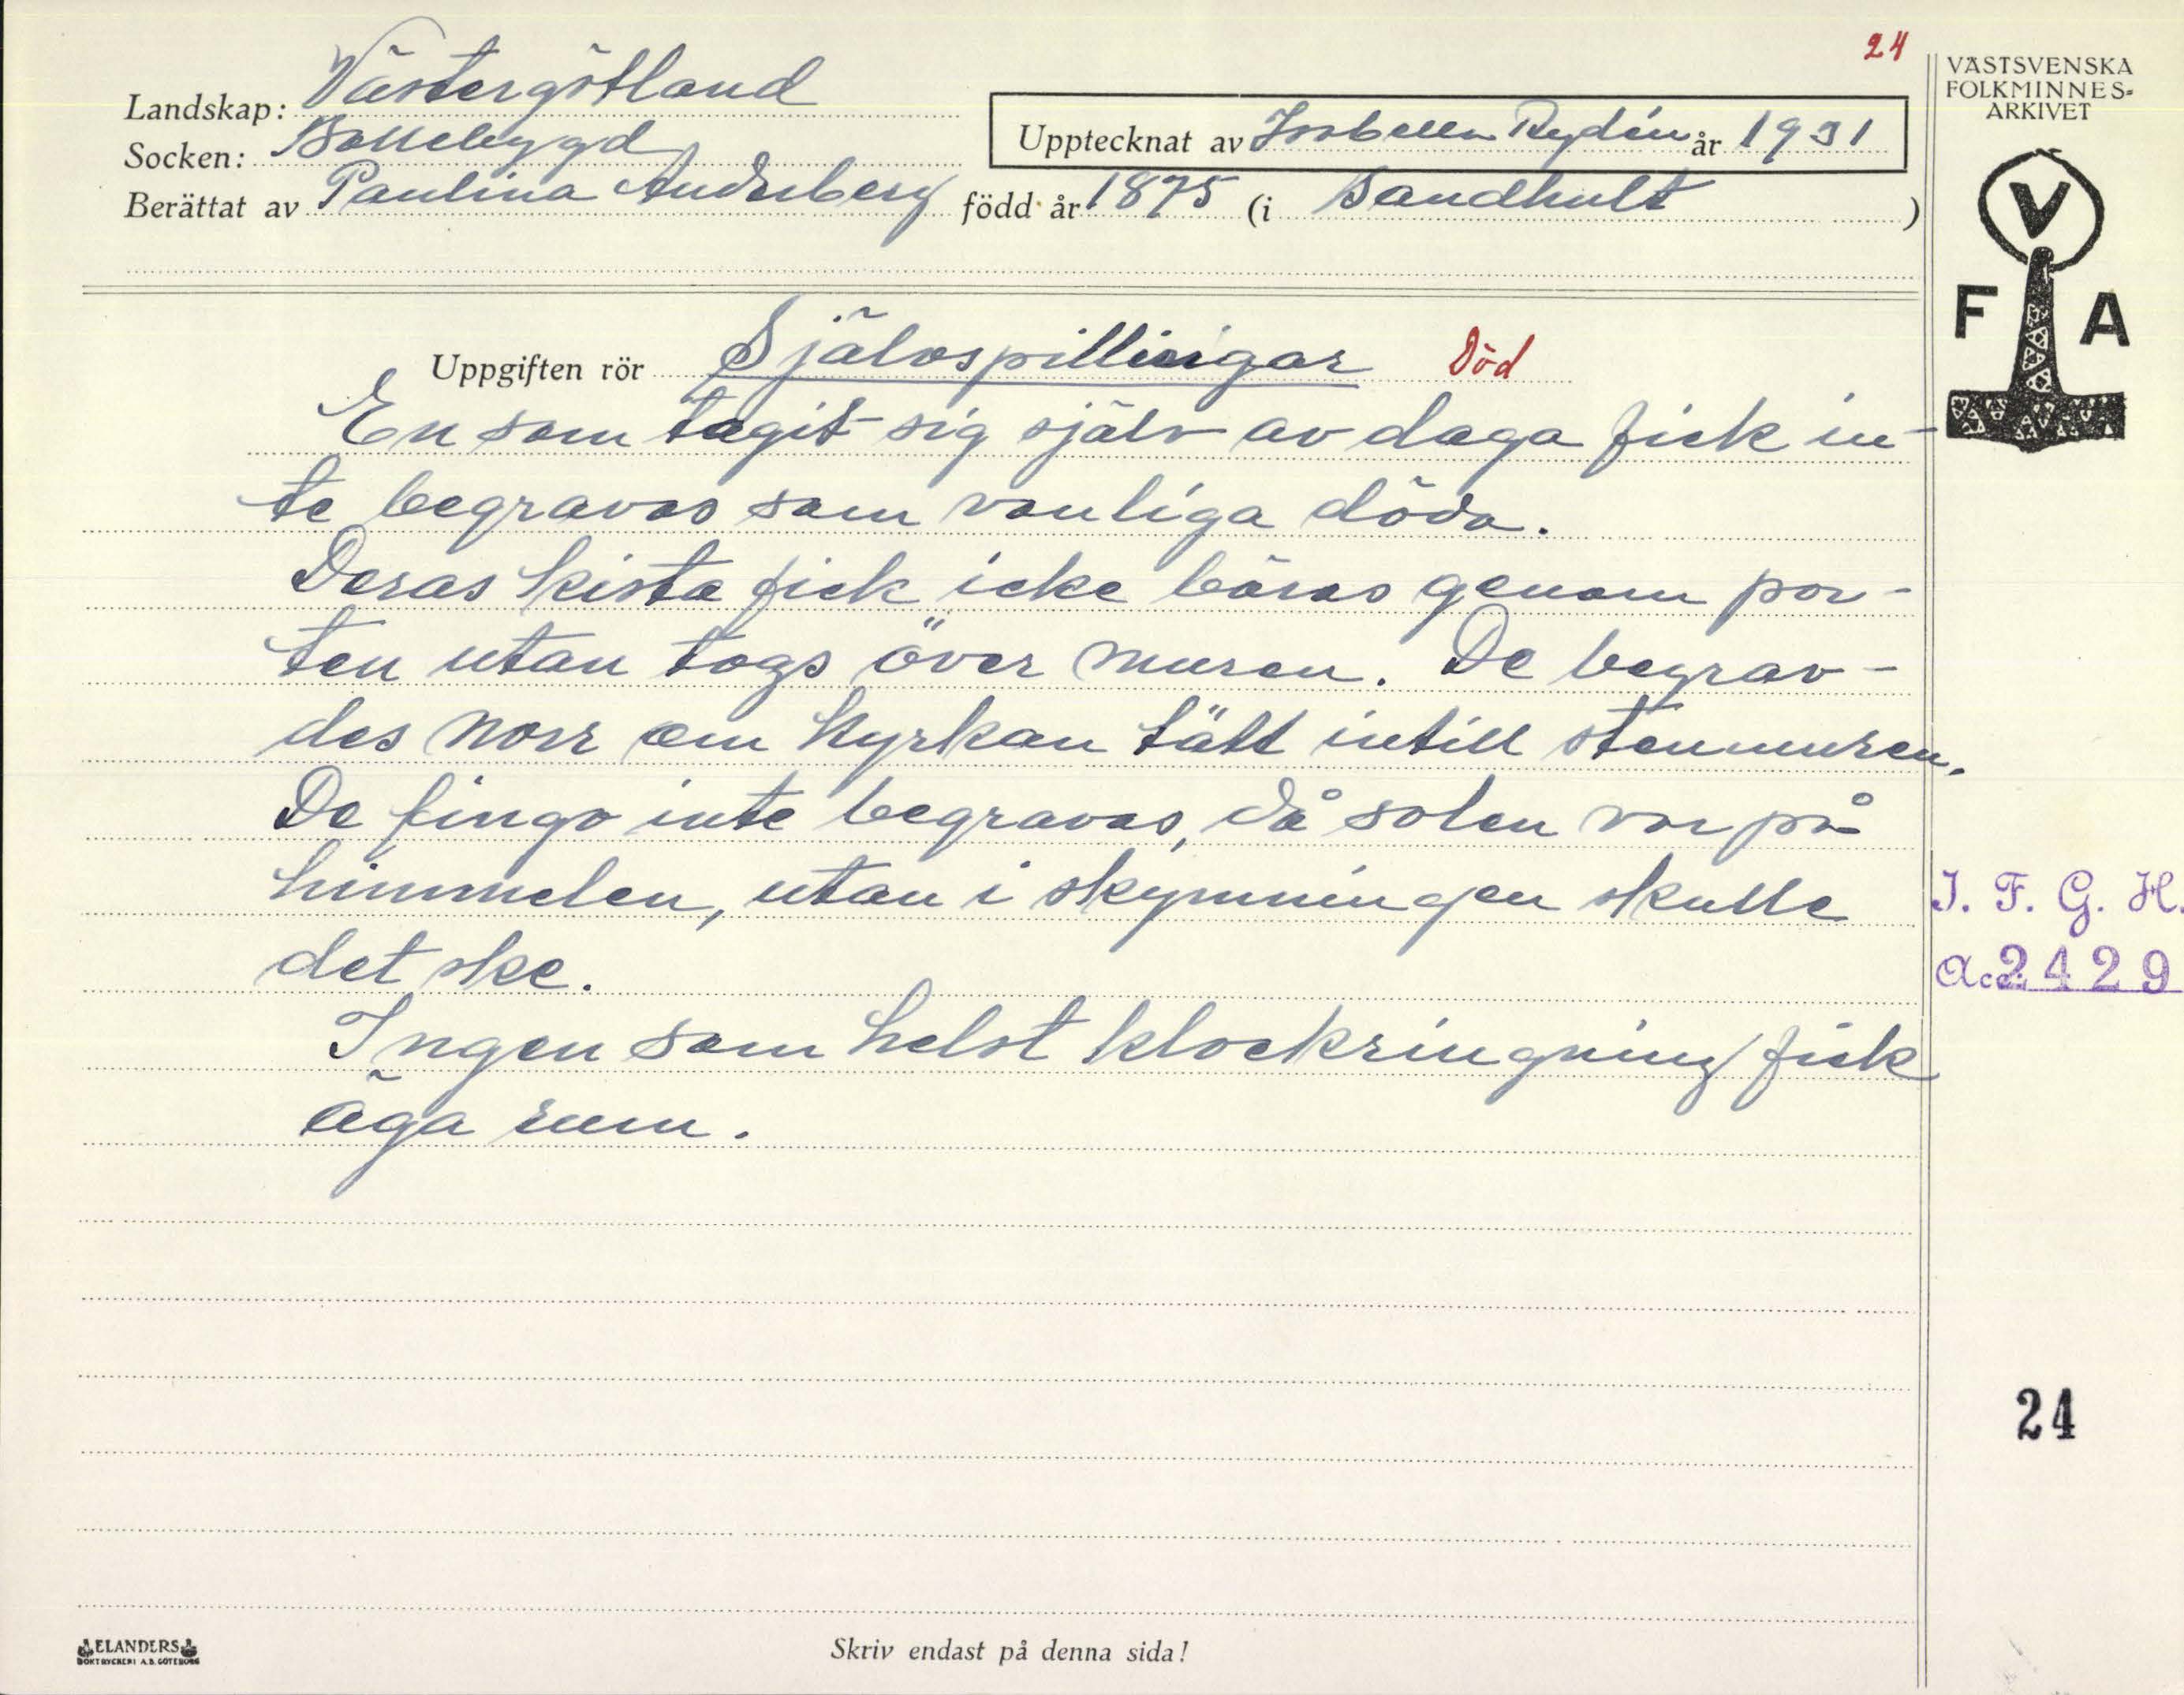 24
VÄSTSVENSKA
FOLKMINNES-
ARKIVET
Landskap: Västergötland
Socken: Bollebygd
Upptecknat av Isabella Rydén år 1931
Berättat av Paulina Anderberg född år 1875 (i Sandhult)
V
F A
Uppgiften rör Självspillingar Död
En som tagit sig själv av daga fick in-
te begravas som vanliga döda.
Deras kista fick icke bäras genom por-
ten utan togs över muren. De begrav-
des norr om kyrkan tätt intill stenmuren.
De fingo inte begravas, då solen var på
himmelen, utan i skymningen skulle
det ske.
Ingen som helst klockringning fick
äga rum.
I. F. G. H.
Acc. 2429
24
ELANDERS
BOKTRYCKERI A.B. GÖTEBORG
Skriv endast på denna sida!